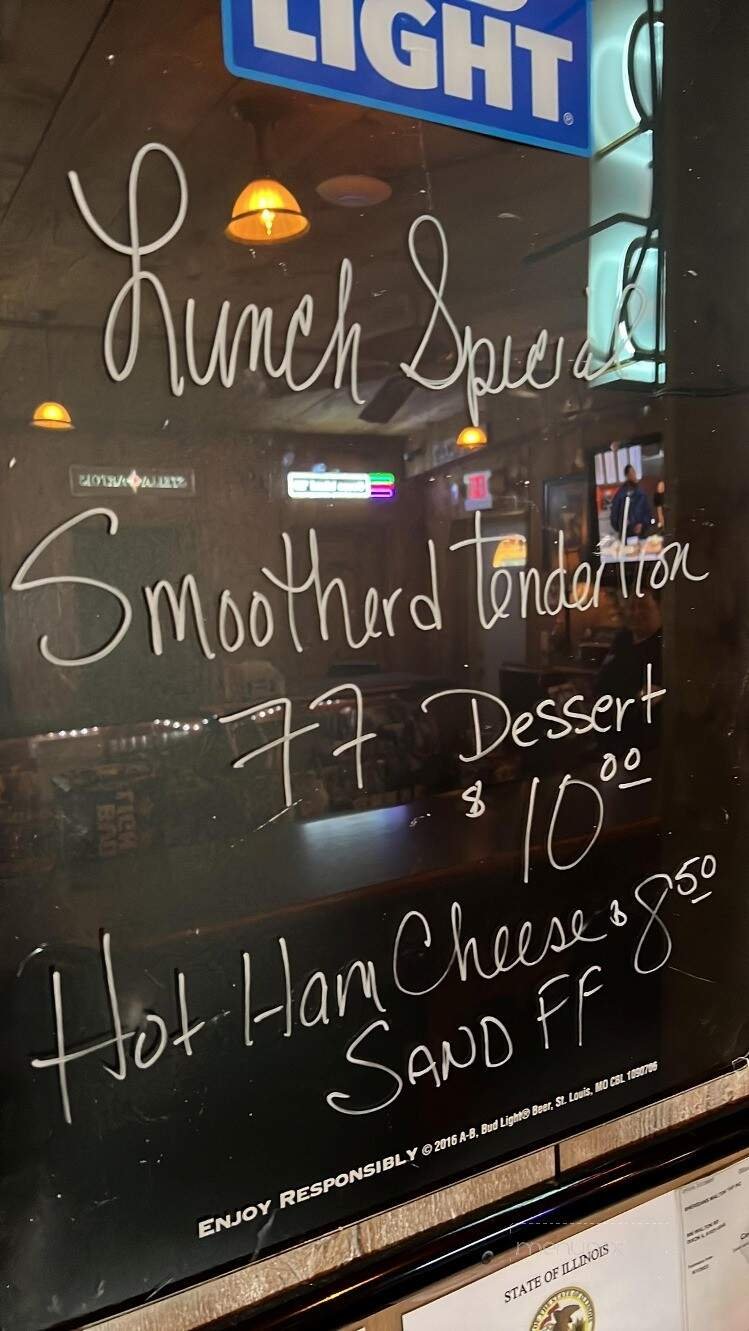 LIGHT®
Lunch Special
Smootherd tenderlion
FF Dessert
$ 10 00
Hot Ham Cheese $ 8 50
SAND FF
ENJOY RESPONSIBLY © 2016 A-B, Bud Light® Beer, St. Louis, MO CBL 1090706
STATE OF ILLINOIS